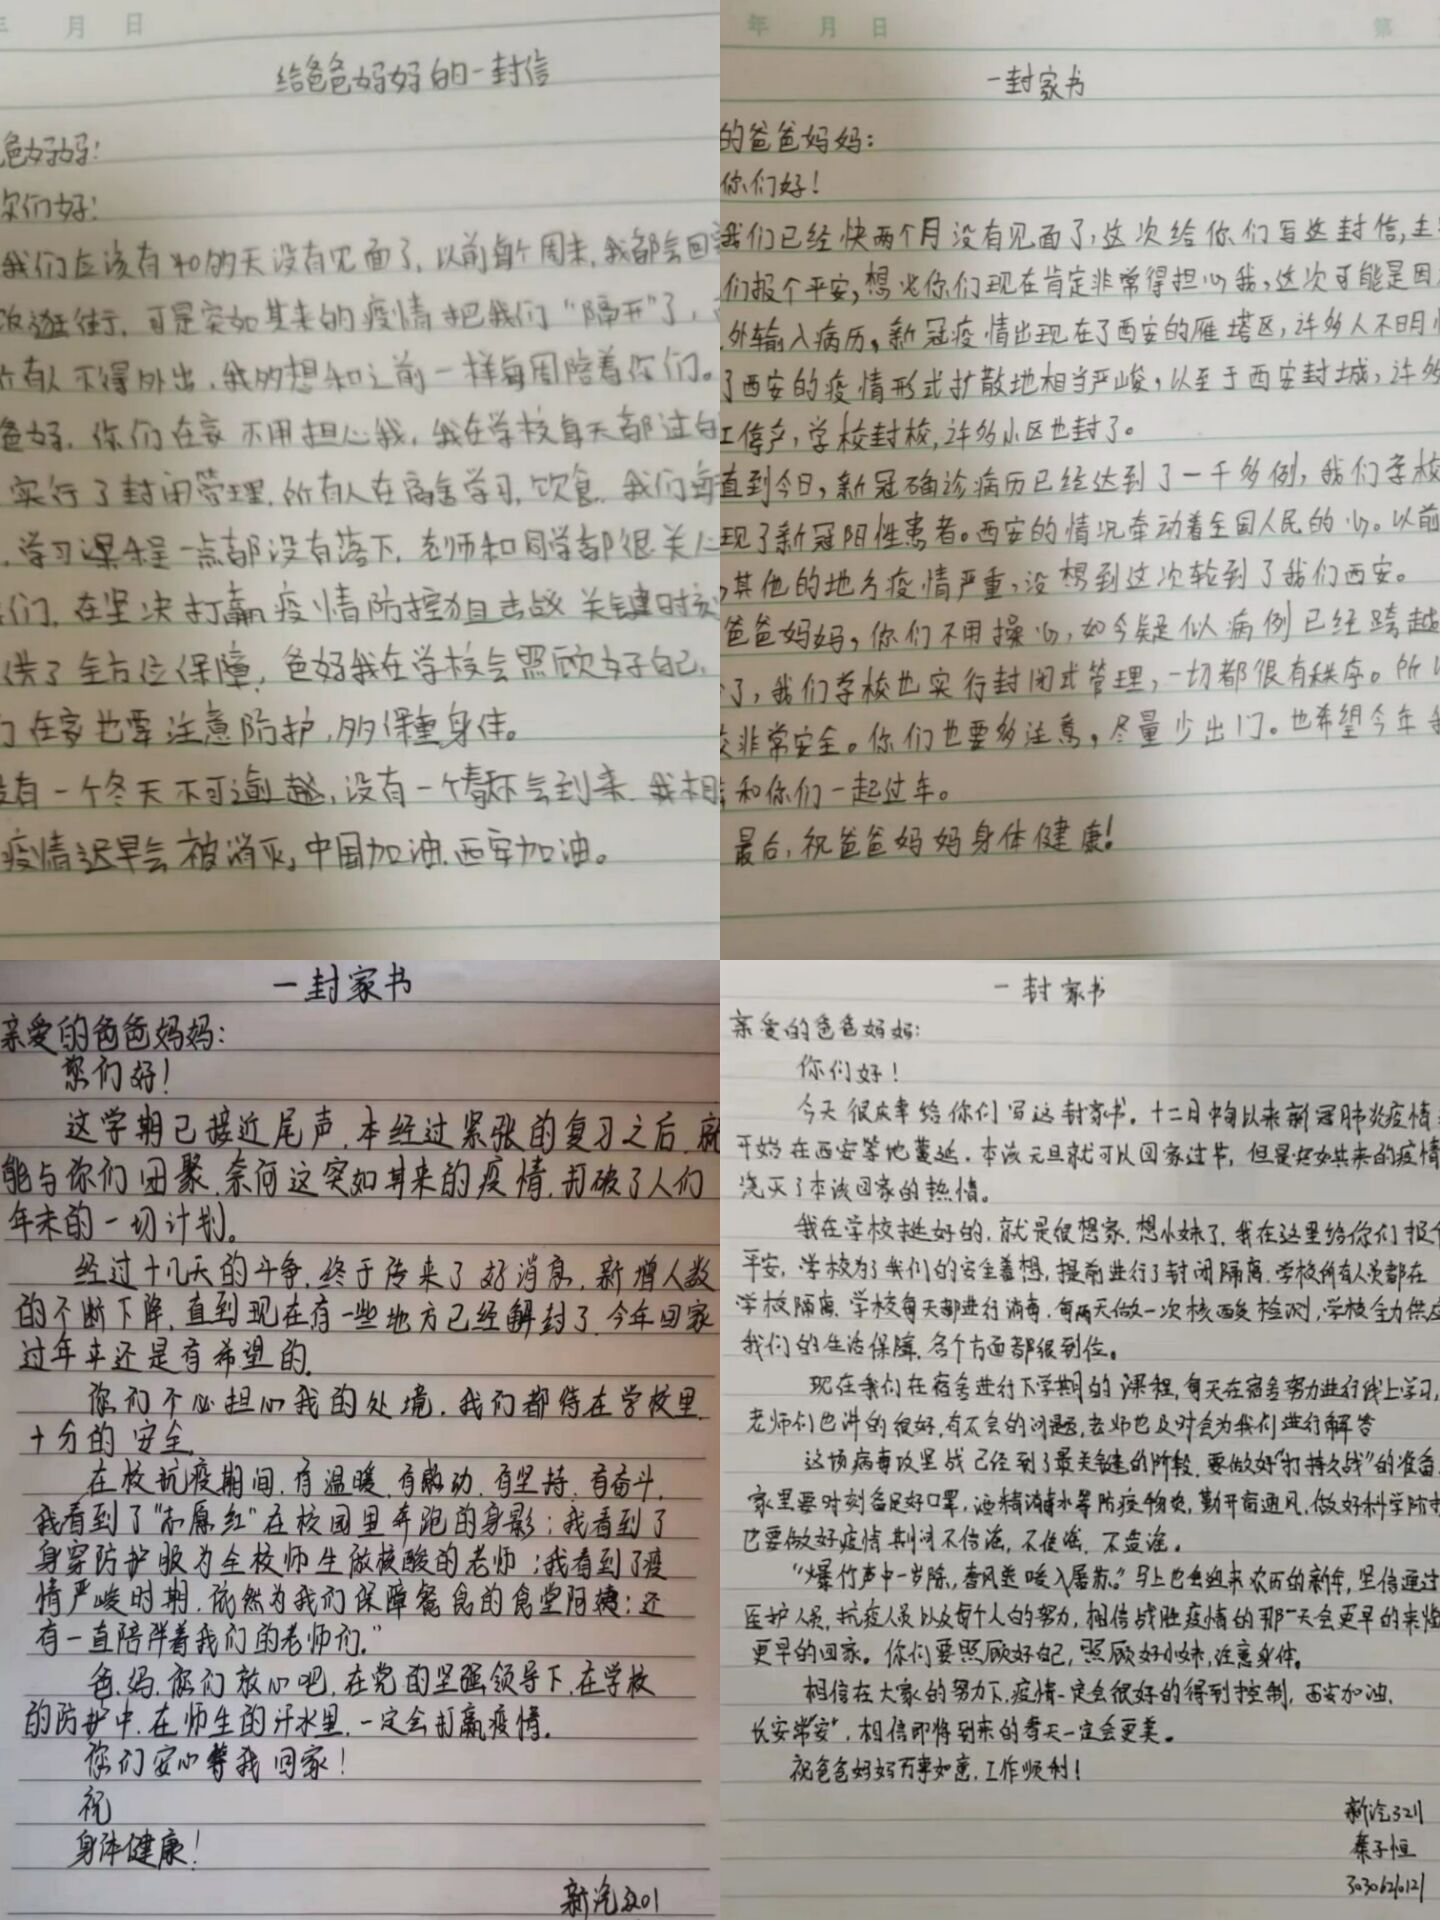 年 月 日
给爸爸妈妈的一封信
爸妈妈:
你们好!
我们应该有40多天没有见面了,以前每个周末,我都会回
饭逛街,可是突如其来的疫情把我们“隔开”了,
所有人不得外出,我多想和之前一样每周陪着你们。
爸妈,你们在家不用担心我,我在学校每天都过的
实行了封闭管理,所有人在宿舍学习,饮食,我们每
,学习课程一点都没有落下,老师和同学都很关心
们,在坚决打赢疫情防控狙击战关键时刻
供了全方位保障,爸妈我在学校会照顾好自己,
们在家也要注意防护,多保重身体。
没有一个冬天不可逾越,没有一个春天不会到来,我相
疫情迟早会被消灭,中国加油,西安加油。
年 月 日 第
一封家书
的爸爸妈妈:
你们好!
我们已经快两个月没有见面了,这次给你们写这封信,主
们报个平安,想必你们现在肯定非常得担心我,这次可能是因
外输入病历,新冠疫情出现在了西安的雁塔区,许多人不明
了西安的疫情形式扩散地相当严峻,以至于西安封城,许多
工停产,学校封校,许多小区也封了。
直到今日,新冠确诊病历已经达到了一千多例,我们学校
现了新冠阳性患者。西安的情况牵动着全国人民的心。以前
其他的地方疫情严重,没想到这次轮到了我们西安。
爸爸妈妈,你们不用操心,如今疑似病例已经跨越
了,我们学校也实行封闭式管理,一切都很有秩序。所以
校非常安全。你们也要多注意,尽量少出门。也希望今年
和你们一起过年。
最后,祝爸爸妈妈身体健康!
一封家书
亲爱的爸爸妈妈:
您们好!
这学期已接近尾声,本经过紧张的复习之后,就
能与你们团聚,奈何这突如其来的疫情,打破了人们
年末的一切计划。
经过十几天的斗争,终于传来了好消息,新增人数
的不断下降,直到现在有一些地方已经解封了,今年回家
过年来还是有希望的。
你们不必担心我的处境,我们都待在学校里,
十分的安全。
在校抗疫期间,有温暖,有感动,有坚持,有奋斗,
我看到了“志愿红”在校园里奔跑的身影;我看到了
身穿防护服为全校师生做核酸的老师;我看到了疫
情严峻时期,依然为我们保障餐食的食堂阿姨;还
有一直陪伴着我们的老师们。”
爸,妈,您们放心吧,在党的坚强领导下,在学校
的防护中,在师生的汗水里,一定会打赢疫情。
你们安心等我回家!
祝
身体健康!
新汽3201
一封家书
亲爱的爸爸妈妈:
你们好!
今天很庆幸给你们写这封家书。十二月中旬以来新冠肺炎疫情
开始在西安等地蔓延。本该元旦就可以回家过节,但是突如其来的疫情
浇灭了本该回家的热情。
我在学校挺好的,就是很想家,想小妹了,我在这里给你们报个
平安,学校为了我们的安全着想,提前进行了封闭隔离,学校所有人员都在
学校隔离,学校每天都进行消毒,每两天做一次核酸检测,学校全力供应
我们的生活保障,各个方面都很到位。
现在我们在宿舍进行下学期的课程,每天在宿舍努力进行线上学习,
老师们也讲的很好,有不会的问题,老师也及时会为我们进行解答
这场病毒攻坚战已经到了最关键的阶段,要做好“打持久战”的准备,
家里要时刻备足好口罩,酒精消毒水等防疫物资,勤开窗通风,做好科学防护
也要做好疫情期间不信谣,不传谣,不造谣。
“爆竹声中一岁除,春风送暖入屠苏。”马上也会迎来农历的新年,坚信通过
医护人员,抗疫人员以及每个人的努力,相信战胜疫情的那一天会更早的来临
更早的回家。你们要照顾好自己,照顾好小妹,注意身体。
相信在大家的努力下,疫情一定会很好的得到控制,西安加油,
长安常“安”,相信即将到来的春天一定会更美。
祝爸爸妈妈万事如意,工作顺利!
新汽3211
秦子恒